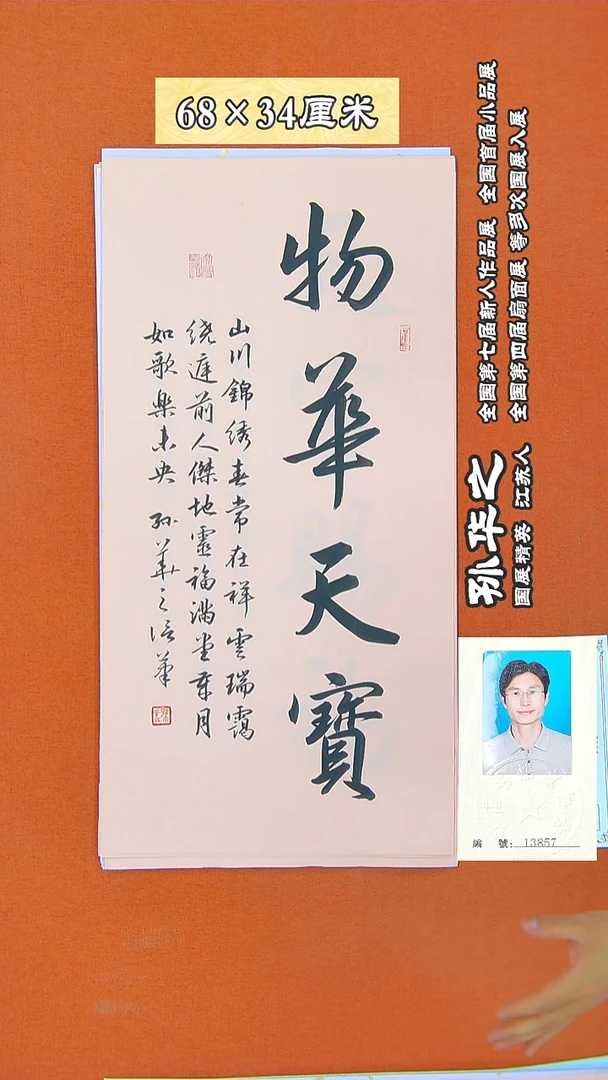 68×34厘米
物華天寶
山川錦绣春常在祥雲瑞靄
绕庭前人傑地靈福满堂歲月
如歌樂未央 孙華之信筆
全国第七届新人作品展 全国首届小品展
全国第四届扇面展 等多次国展入展
孙华之
国展精英 江苏人
編 號: 13857